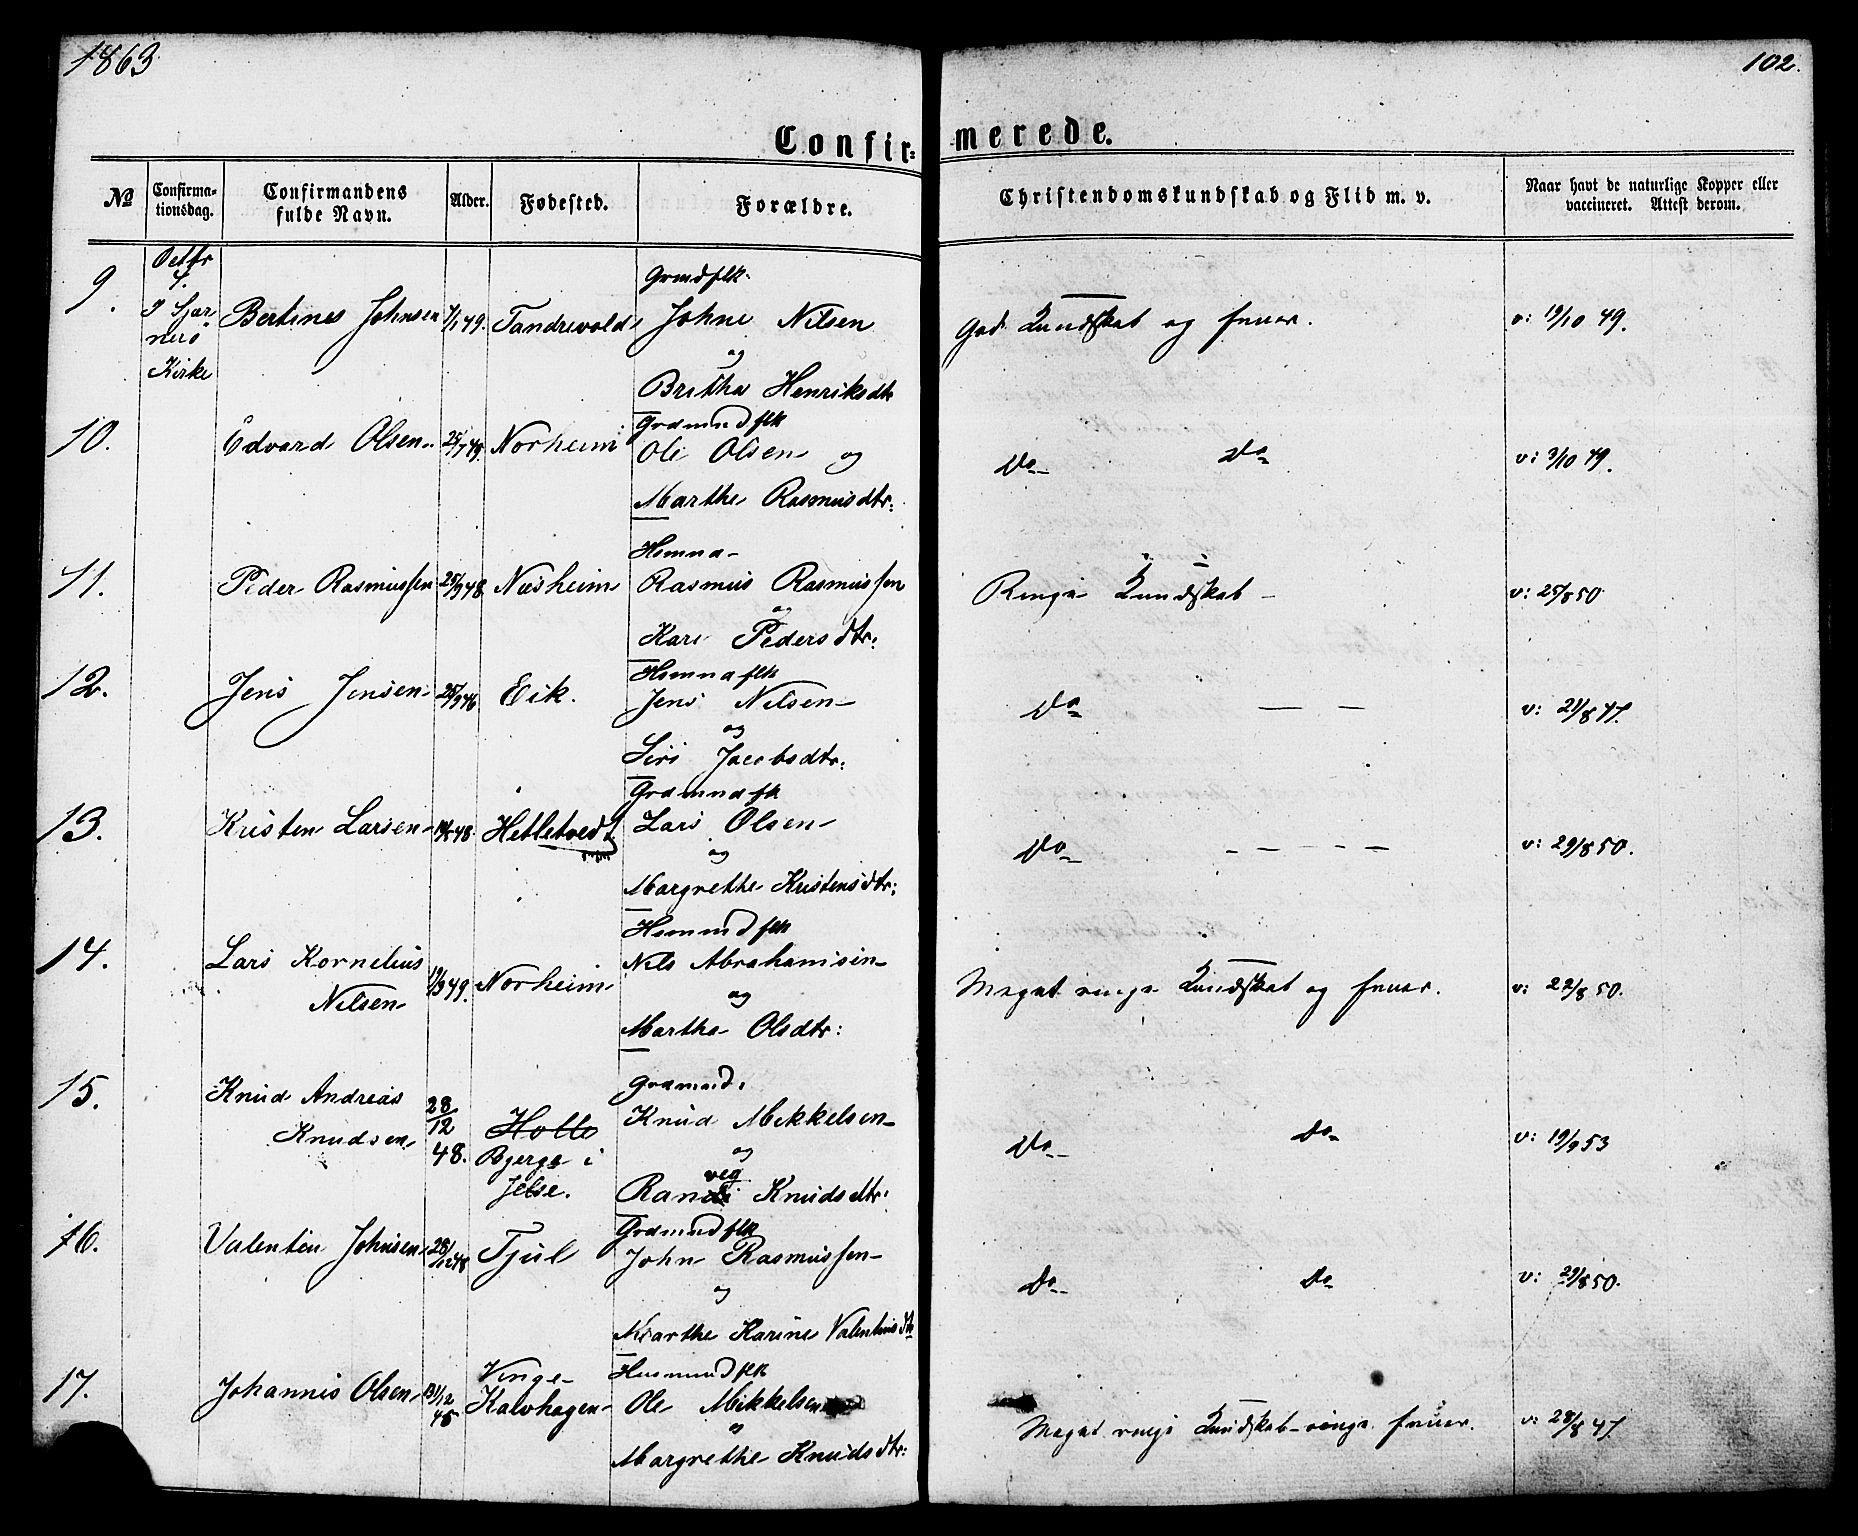 1863
102.
Confir-merede.
No
Confirma-
tionsdag.
Confirmandens
fulde Navn.
Alder.
Fødested.
Forældre.
Christendomskundskab og Flid m. v.
Naar havt de naturlige Kopper eller
vaccineret. Attest derom.
9.
Octbr
4.
I Sjær
nerö
Kirke
Bertines Johnsen
Tandrevold
Grmdflk.
Johne Nilsen
og
Britha Henriksdtr
God Kundskab og
v: 19/10 49.
10.
Edvard Olsen
Norheim
Grdmndflk
Ole Olsen og
Marthe Rasmusdtr:
Do Do
v: 3/10 49.
11.
Peder Rasmussen
25/9 48
Næsheim
Rasmus Rasmussen
og
Kari Pedersdtr:
Ringe Kundskab
v: 25/8 50
12.
Jens Jensen
25/9 46
Eik.
Jens Nilsen
og
Siri Jacobsdtr.
Do — —
v: 21/8 47.
13.
Kristen Larsen
Hetletvedt
Lars Olsen
og
Margrethe Kristensdtr:
Do - - - - -
v: 29/8 50.
14.
Lars Kornelius
Nilsen
19/9 49.
Norheim
Nils Abrahamsen
og
Martha Olsdtr:
Meget ringe Kundskab og
v: 22/8 50.
15.
Knud Andreas
Knudsen
28/12
48.
Bjerge i
Jelse.
Grdmnd.
Knud Mikkelsen
og
Knudsdtr:
Do Do
v: 19/9 53
16.
Valentin Johnsen
28/12 48
Tjul
Grdmndflk
John Rasmussen
og
Marthe Karine Valentinsdtr
Do Do
v: 29/8 50.
17.
Johannis Olsen
31/12
45
Vinge
Kalvhagen
Husmndflk
Ole Mikkelsen
og
Margrethe Knudsdtr:
Meget ringe Kundskab - ringe
v: 28/8 47.